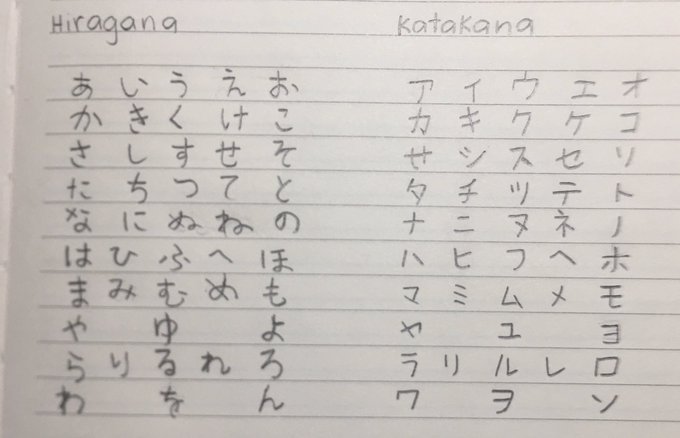 Hiragana Katakana
あ い う え お ア イ ウ エ オ
か き く け こ カ キ ク ケ コ
さ し す せ そ サ シ ス セ ソ
た ち つ て と タ チ ツ テ ト
な に ぬ ね の ナ ニ ヌ ネ ノ
は ひ ふ へ ほ ハ ヒ フ ヘ ホ
ま み む め も マ ミ ム メ モ
や ゆ よ ヤ ユ ヨ
ら り る れ ろ ラ リ ル レ ロ
わ を ん ワ ヲ ン